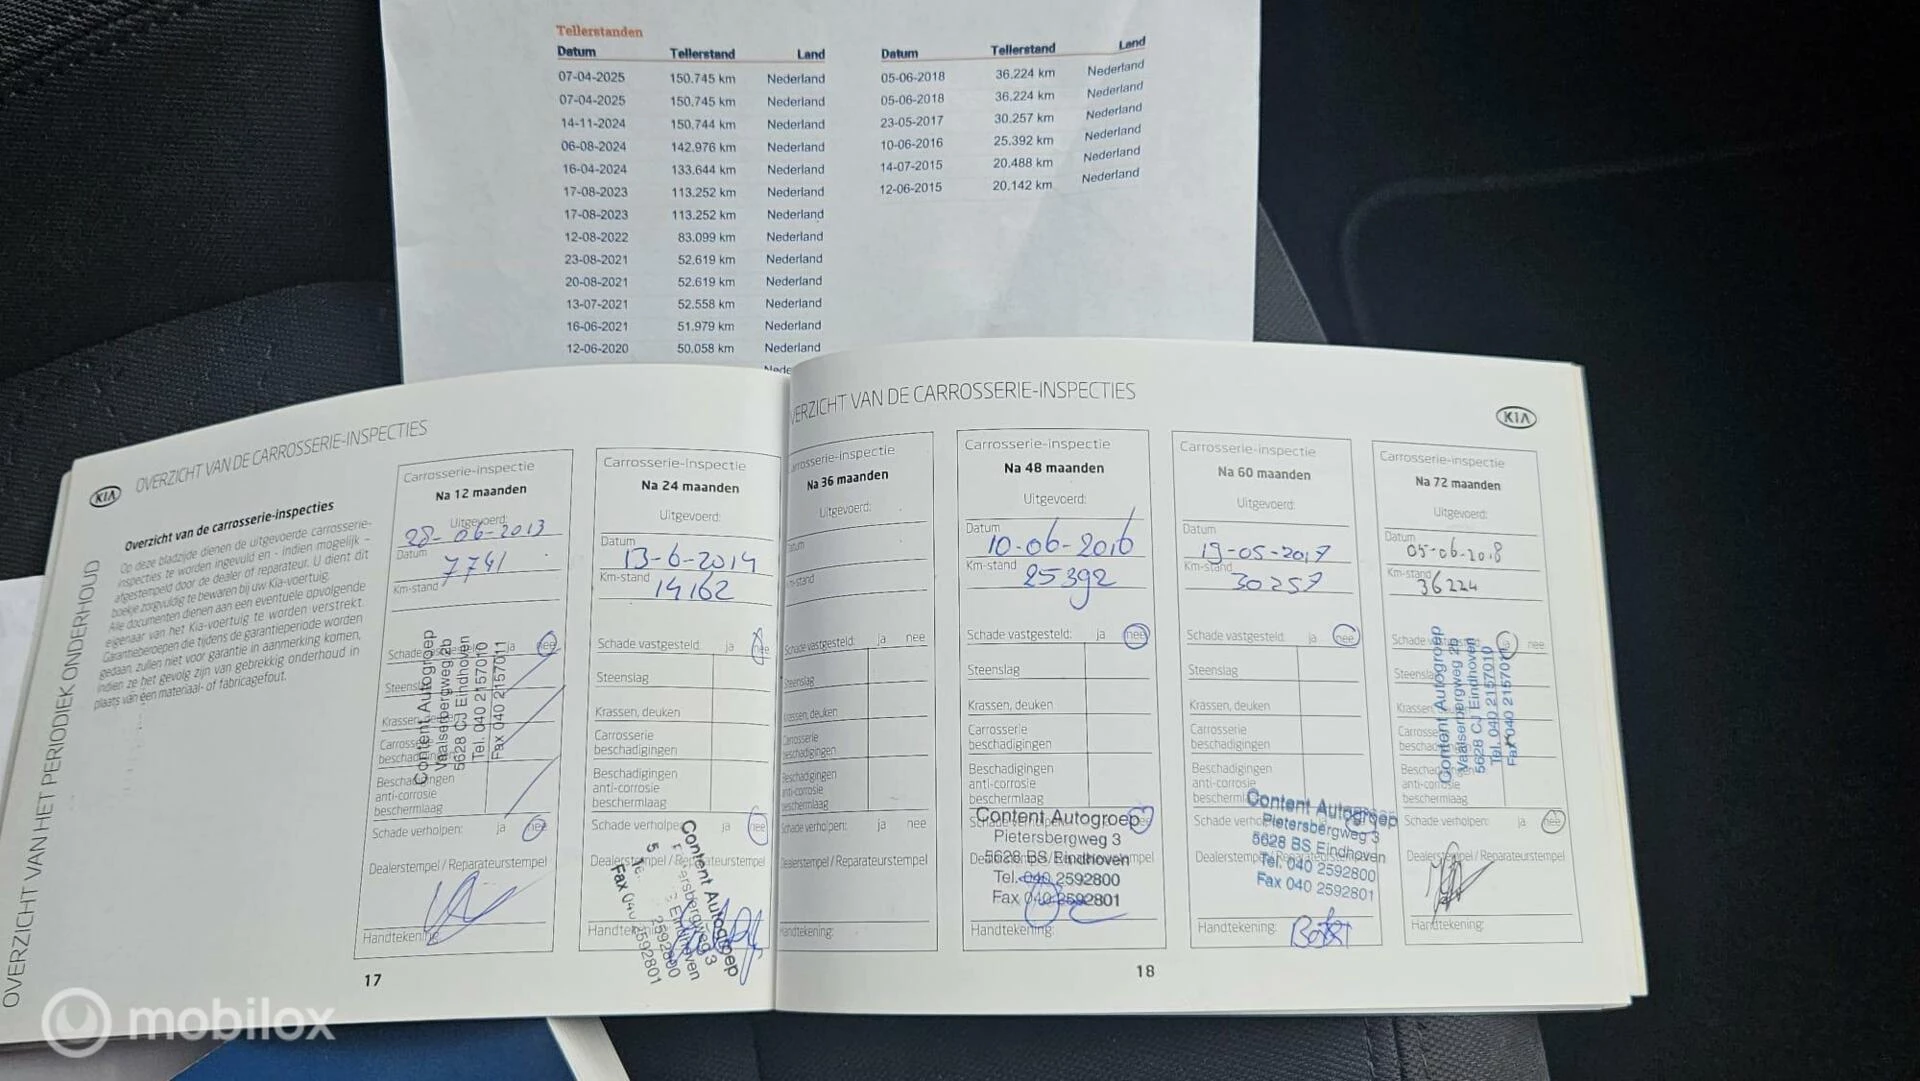 Tellerstanden
Datum Tellerstand Land
07-04-2025 150.745 km Nederland
07-04-2025 150.745 km Nederland
14-11-2024 150.744 km Nederland
06-08-2024 142.976 km Nederland
16-04-2024 133.644 km Nederland
17-08-2023 113.252 km Nederland
17-08-2023 113.252 km Nederland
12-08-2022 83.099 km Nederland
23-08-2021 52.619 km Nederland
20-08-2021 52.619 km Nederland
13-07-2021 52.558 km Nederland
16-06-2021 51.979 km Nederland
12-06-2020 50.058 km Nederland
Datum Tellerstand Land
05-06-2018 36.224 km Nederland
05-06-2018 36.224 km Nederland
23-05-2017 30.257 km Nederland
10-06-2016 25.392 km Nederland
14-07-2015 20.488 km Nederland
12-06-2015 20.142 km Nederland
OVERZICHT VAN HET PERIODIEK ONDERHOUD
KIA
OVERZICHT VAN DE CARROSSERIE-INSPECTIES
Overzicht van de carrosserie-inspecties
Op deze bladzijde dienen de uitgevoerde carrosserie-
inspecties te worden ingevuld en - indien mogelijk -
afgestempeld door de dealer of reparateur. U dient dit
boekje zorgvuldig te bewaren bij uw Kia-voertuig.
Alle documenten dienen aan een eventuele opvolgende
eigenaar van het Kia-voertuig te worden verstrekt.
Garantieberoepen die tijdens de garantieperiode worden
gedaan, zullen niet voor garantie in aanmerking komen,
indien ze het gevolg zijn van gebrekkig onderhoud in
plaats van een materiaal- of fabricagefout.
Carrosserie-inspectie
Na 12 maanden
Uitgevoerd:
28-06-2013
Datum
7741
Km-stand
Schade ja nee
Steensl
Krassen, de
Carrosse
beschadigingen
Beschadigingen
anti-corrosie
beschermlaag
Schade verholpen: ja nee
Dealerstempel / Reparateurstempel
Handtekening:
Content Autogroep
Vaalserbergweg 2b
5628 CJ Eindhoven
Tel. 040 2157010
Fax 040 2157011
Carrosserie-inspectie
Na 24 maanden
Uitgevoerd:
Datum
13-6-2014
Km-stand
14162
Schade vastgesteld: ja nee
Steenslag
Krassen, deuken
Carrosserie
beschadigingen
Beschadigingen
anti-corrosie
beschermlaag
Schade verholpe ja nee
Dealerstempel / Reparateurstempel
Handtekening:
Content Autogroep
Pietersbergweg 3
Eindhoven
2592800
Fax 040 2592801
17
VERZICHT VAN DE CARROSSERIE-INSPECTIES
KIA
arrosserie-inspectie
Na 36 maanden
Uitgevoerd:
Datum
m-stand
Schade vastgesteld: ja nee
Steenslag
Krassen, deuken
Carrosserie
beschadigingen
Beschadigingen
anti-corrosie
beschermlaag
Schade verholpen: ja nee
Dealerstempel / Reparateurstempel
Handtekening:
Carrosserie-inspectie
Na 48 maanden
Uitgevoerd:
Datum
10-06-2016
Km-stand
25392
Schade vastgesteld: ja nee
Steenslag
Krassen, deuken
Carrosserie
beschadigingen
Beschadigingen
anti-corrosie
beschermlaag
Content Autogroep
Pietersbergweg 3
5628 BS Eindhoven
Tel. 040 2592800
Fax 040 2592801
Handtekening:
Carrosserie-inspectie
Na 60 maanden
Uitgevoerd:
Datum
19-05-2017
Km-stand
30257
Schade vastgesteld: ja nee
Steenslag
Krassen, deuken
Carrosserie
beschadigingen
Beschadigingen
anti-corrosie
bescherml
Content Autogroep
Pietersbergweg 3
5628 BS Eindhoven
Tel. 040 2592800
Fax 040 2592801
Handtekening:
Carrosserie-inspectie
Na 72 maanden
Uitgevoerd:
Datum
05-06-2018
Km-stand
36224
Schade ja nee
Steensla
Krassen
Carrosse
bescha
Beschadigingen
anti-corrosie
beschermlaag
Schade verholpen: ja nee
Dealerstempel / Reparateurstempel
Handtekening:
Content Autogroep
Vaalserbergweg 2b
5628 CJ Eindhoven
Tel. 040 2157010
Fax 040 2157011
18
mobilox